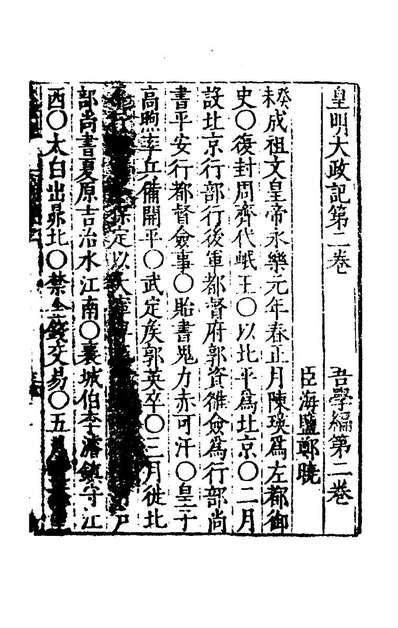 皇明大政記第二卷 吾學編第二卷
臣海鹽鄭曉
癸未成祖文皇帝永樂元年春正月陳瑛爲左都御
史○復封周齊代岷王○以北平爲北京○二月
設北京行部行後軍都督府郭資雒僉爲行部尚
書平安行都督僉事○貽書鬼力赤可汗○皇子
高煦率兵備開平○武定侯郭英卒○三月徙北
行 保定以大 戶
部尚書夏原吉治水江南○襄城伯李濬鎮守江
西○太白出昴北○禁金錢交易○五月